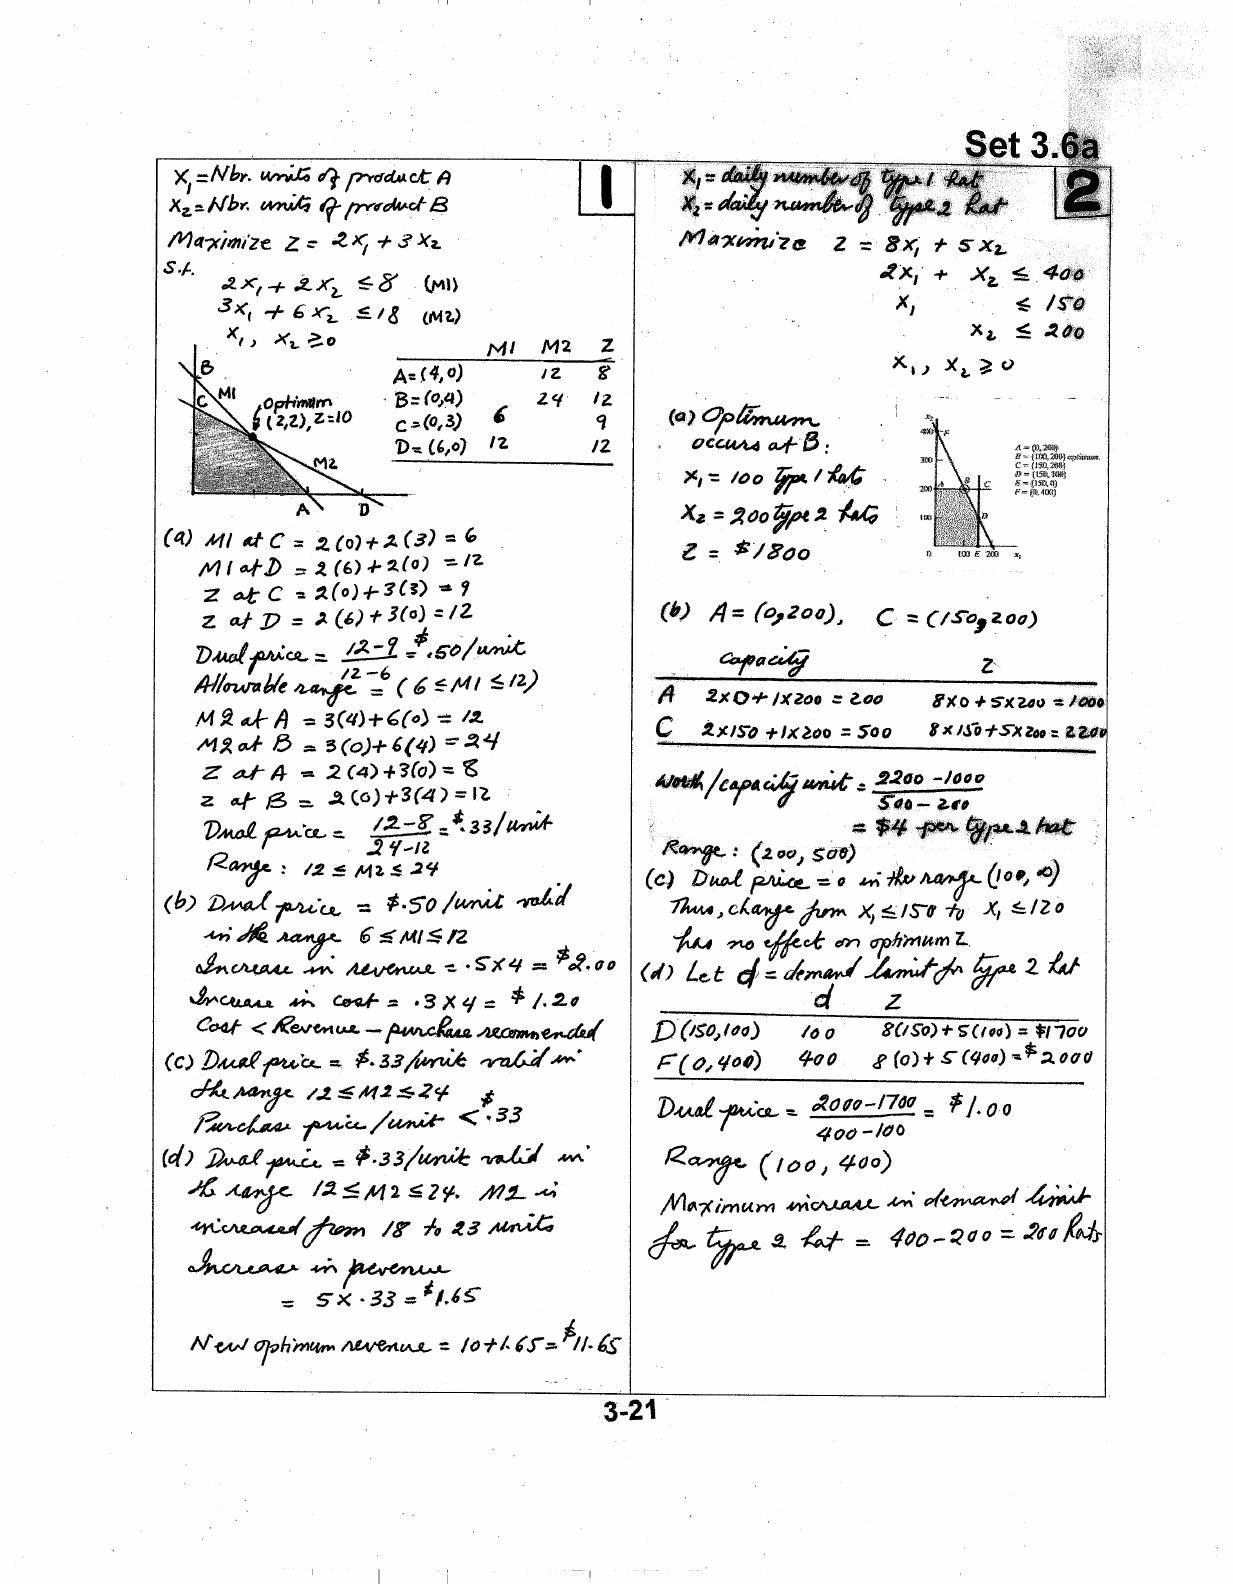 Set 3.6a
1
X₁ = Nbr. units of product A
X₂ = Nbr. units of product B
Maximize Z = 2X₁ + 3X₂
s.t.
2X₁ + 2X₂ ≤ 8 (M1)
3X₁ + 6X₂ ≤ 18 (M2)
X₁, X₂ ≥ 0
M1 M2 Z
A=(4,0) 12 8
B=(0,4) 24 12
C=(0,3) 6 9
D=(6,0) 12 12
B
C M1 Optimum
(2,2), Z=10
M2
A D
(a) M1 at C = 2(0)+2(3) = 6
M1 at D = 2(6)+2(0) = 12
Z at C = 2(0)+3(3) = 9
Z at D = 2(6)+3(0) = 12
Dual price = 12-9/12-6 = $.50/unit
Allowable range = (6 ≤ M1 ≤ 12)
M2 at A = 3(4)+6(0) = 12
M2 at B = 3(0)+6(4) = 24
Z at A = 2(4)+3(0) = 8
Z at B = 2(0)+3(4) = 12
Dual price = 12-8/24-12 = $.33/unit
Range: 12 ≤ M2 ≤ 24
(b) Dual price = $.50/unit valid
in the range 6 ≤ M1 ≤ 12
Increase in revenue = .5X4 = $2.00
Increase in cost = .3X4 = $1.20
Cost < Revenue – purchase recommended
(c) Dual price = $.33/unit valid in
the range 12 ≤ M2 ≤ 24
Purchase price/unit < $.33
(d) Dual price = $.33/unit valid in
the range 12 ≤ M2 ≤ 24. M2 is
increased from 18 to 23 units
Increase in revenue
= 5X.33 = $1.65
New optimum revenue = 10+1.65 = $11.65
2
X₁ = daily number of type 1 hat
X₂ = daily number of type 2 hat
Maximize Z = 8X₁ + 5X₂
2X₁ + X₂ ≤ 400
X₁ ≤ 150
X₂ ≤ 200
X₁, X₂ ≥ 0
(a) Optimum
occurs at B:
X₁ = 100 type 1 hats
X₂ = 200 type 2 hats
Z = $1800
x₂
400 F
300
200 A B C
100 D
0 100 E 200 x₁
A = (0, 200)
B = (100, 200) optimum
C = (150, 200)
D = (150, 100)
E = (150, 0)
F = (0, 400)
(b) A = (0,200), C = (150,200)
Capacity Z
A 2X0+1X200 = 200 8X0+5X200 = 1000
C 2X150+1X200 = 500 8X150+5X200 = 2200
worth/capacity unit = 2200-1000/500-200
= $4 per type 2 hat
Range: (200, 500)
(c) Dual price = 0 in the range (100, ∞)
Thus, change from X₁ ≤ 150 to X₁ ≤ 120
has no effect on optimum Z
(d) Let d = demand limit for type 2 hat
d Z
D(150,100) 100 8(150)+5(100) = $1700
F(0,400) 400 8(0)+5(400) = $2000
Dual price = 2000-1700/400-100 = $1.00
Range (100, 400)
Maximum increase in demand limit
for type 2 hat = 400-200 = 200 hats
3-21